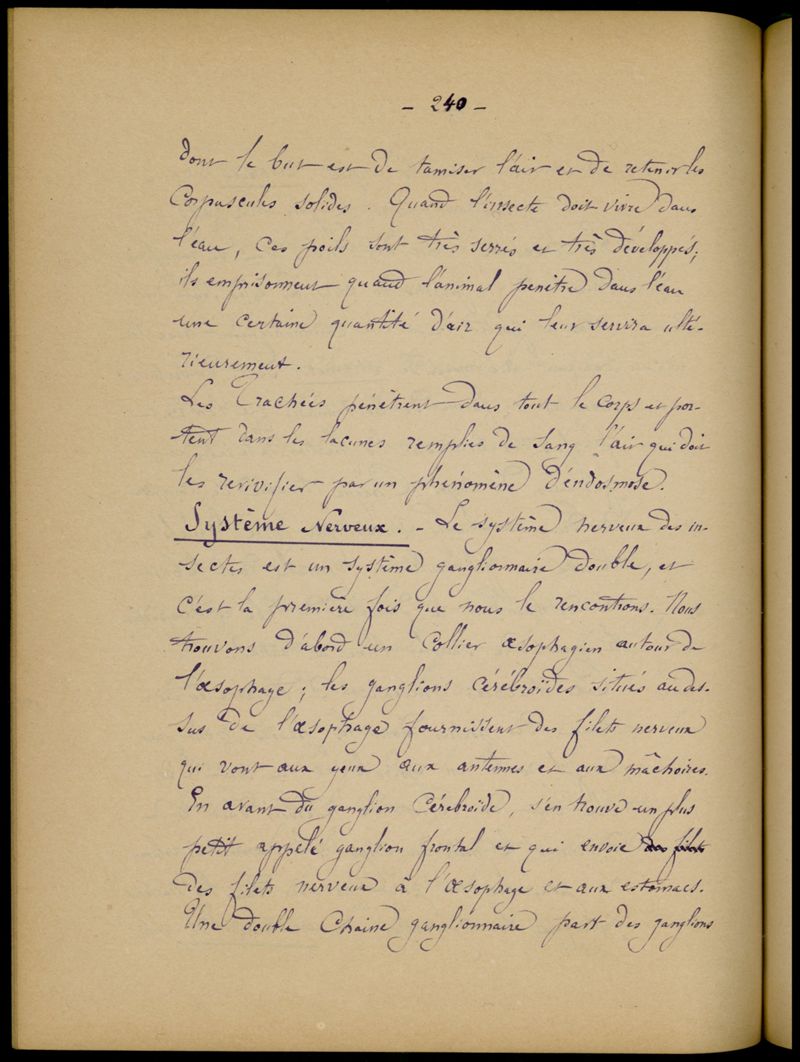 - 240 -
dont le but est de tamiser l'air et de retenir les
Corpuscules solides. Quand l'insecte doit vivre dans
l'eau, ces poils sont très serrés et très développés;
ils emprisonnent quand l'animal penètre dans l'eau
une certaine quantité d'air qui leur servira ulté-
rieurement.
Les Trachées pénètrent dans tout le corps et por-
tent dans les lacunes remplies de sang l'air qui doit
les revivifier par un phénomène d'éndosmose.
Système Nerveux. - Le système nerveux des in-
sectes est un système ganglionnaire double, et
c'est la première fois que nous le rencontrons. Nous
trouvons d'abord un Collier œsophagien autour de
l'œsophage; les ganglions cérébroïdes situés au des-
sus de l'œsophage fournissent des filets nerveux
qui vont aux yeux aux antennes et aux mâchoires.
En avant du ganglion Cérébroïde, s'en trouve un plus
petit appelé ganglion frontal et qui envoie des filets
des filets nerveux à l'œsophage et aux estomacs.
Une double Chaine ganglionnaire part des ganglions